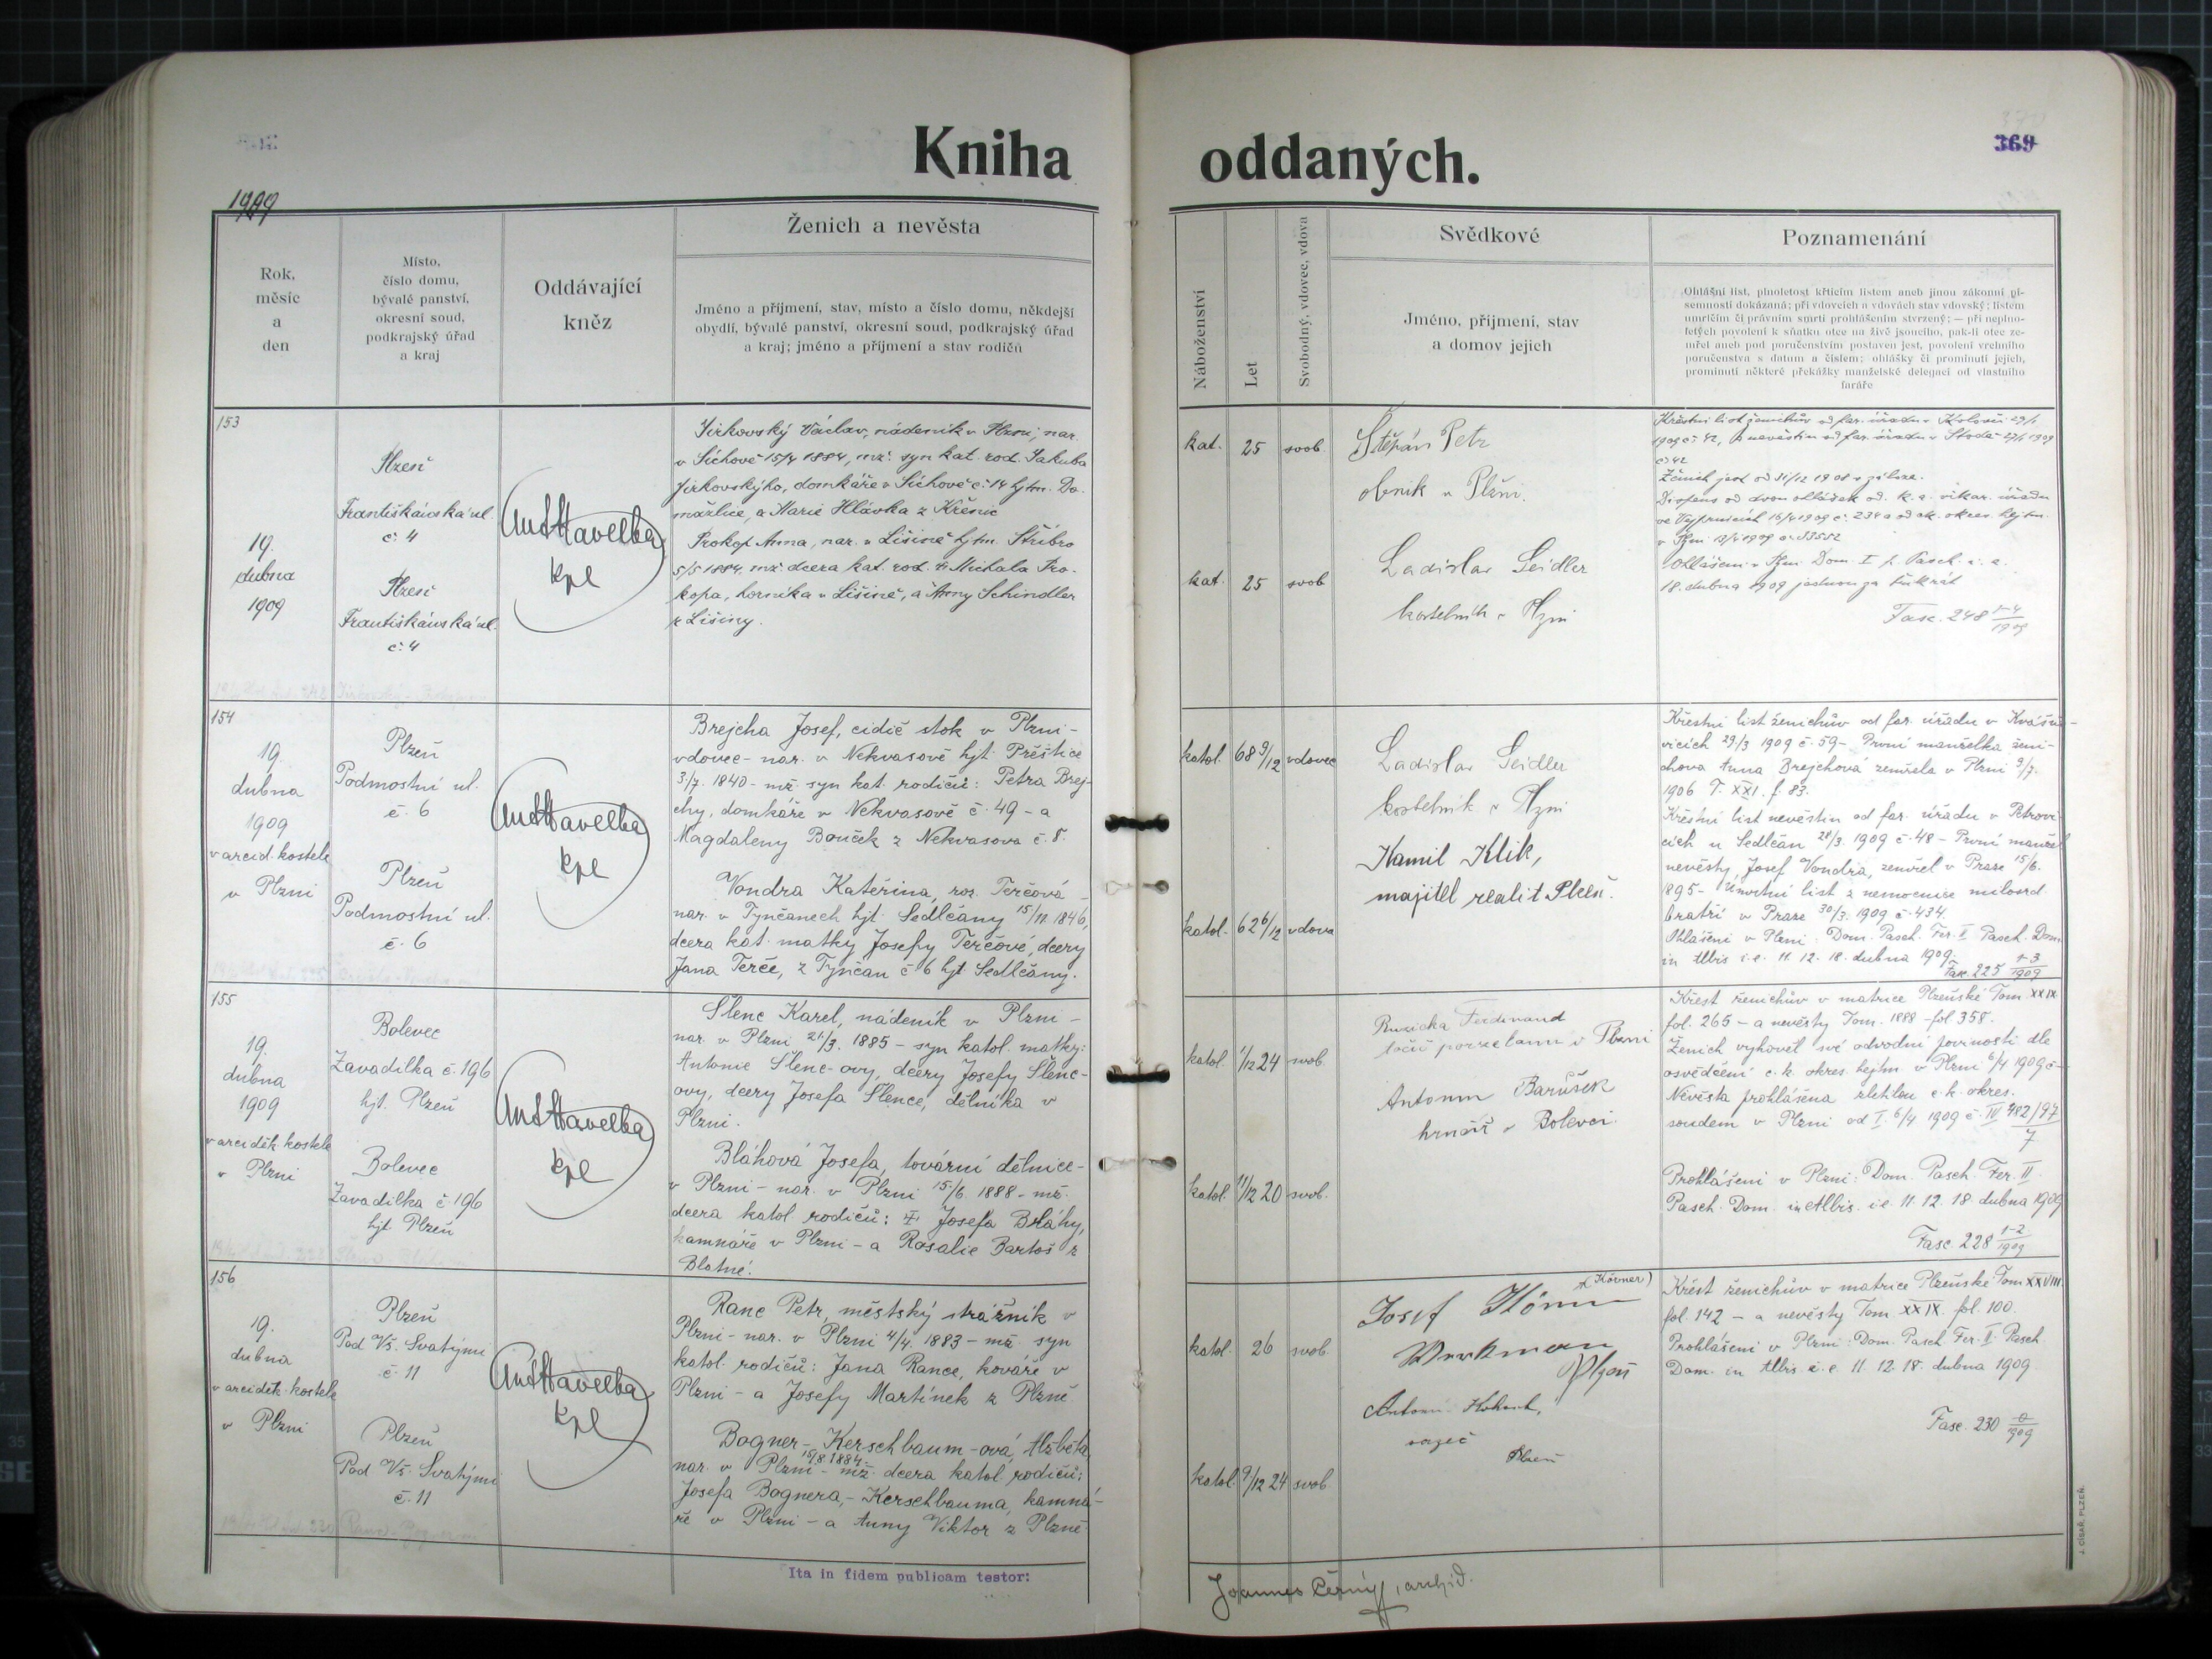 Kniha oddaných.
369
1909
Rok,
měsíc
a
den
Místo,
číslo domu,
bývalé panství,
okresní soud,
podkrajský úřad
a kraj
Oddávající
kněz
Ženich a nevěsta
Jméno a příjmení, stav, místo a číslo domu, někdejší
obydlí, bývalé panství, okresní soud, podkrajský úřad
a kraj; jméno a příjmení a stav rodičů
Náboženství
Let
Svobodný, vdovec, vdova
Svědkové
Jméno, příjmení, stav
a domov jejich
Poznamenání
Ohlášní list, plnoletost křticím listem aneb jinou zákonní pí-
semností dokázaná; při vdovcích a vdovách stav vdovský; listem
umrlčím či právním smrti prohlášením stvrzený; — při neplno-
letých povolení k sňatku otce na živě jsoucího, pak-li otce ze-
mřel aneb pod poručenstvím postaven jest, povolení vrchního
poručenstva s datum a číslem; ohlášky či prominutí jejich,
prominutí některé překážky manželské delegací od vlastního
faráře
153
19.
dubna
1909
Plzeň
Františkánská ul.
č. 4
Plzeň
Františkánská ul.
č. 4
Ant Havelka
kpl
Jirkovský Václav, nádeník v Plzni, nar.
v Síchově 15/4 1884, mž. syn kat. rod. Jakuba
Jirkovskýho, domkáře v Síchově č. 14 hjtm. Do-
mažlice, a Marie Hlávka z Křenic
Prokop Anna, nar. v Lišině hjtm. Stříbro
5/5 1884. mž. dcera kat. rod. Michala Pro-
kopa, horníka v Lišině, a Anny Schindler
z Lišiny.
kat. 25 svob
kat. 25 svob
Štěpán Petr
v Plzni.
Ladislav Seidler
kostelník v Plzni
Křestní list ženichův od far. úřadu v 29/1
1909 č. 42, a nevěstin od far. úřadu v Stodě 27/1 1909
č. 42
Ženich jest od 31/12 1908 v záloze.
Dispens od dvou ohlášek od. k. a. vikar. úřadu
ve Vejprnicích 16/4 1909 č. 234 a od ck. okres. hejtm.
v Plzni 1909 č.
Ohlášeni v Plzni Dom. I p. Pasch. i. e.
18. dubna 1909 jednou za třikrát
Fasc. 248 1-4/1909
154
19.
dubna
1909
v arcid. kostele
v Plzni
Plzeň
Podmostní ul.
č. 6
Plzeň
Podmostní ul.
č. 6
Ant Havelka
kpl
Brejcha Josef, cidič stok v Plzni -
vdovec - nar. v Nekvasově hjt. Přeštice
3./7. 1840 - mž. syn kat. rodičů: Petra Brej-
chy, domkáře v Nekvasově č. 49 - a
Magdaleny Bouček z Nekvasova č. 8.
Vondra Kateřina, roz. Terčová -
nar. v Týnčanech hjt. Sedlčany 15/11. 1846,
dcera kat. matky Josefy Terčové, dcery
Jana Terče, z Týnčan č 6 hjt Sedlčany.
katol. 68 9/12 vdovec
katol. 62 6/12 vdova
Ladislav Seidler
kostelník v Plzni
Kamil Klik,
majitel realit Plzeň.
Křestní list ženichův od far. úřadu v Kvášňo-
vicích 29/3 1909 č. 59 - První manželka ženi-
chova Anna Brejchová zemřela v Plzni 9/7.
1906 T. XXI. f. 83.
Křestní list nevěstin od far. úřadu v Petrovi-
cích u Sedlčan 28/3. 1909 č. 48 - První manžel
nevěsty, Josef Vondra, zemřel v Praze 15/6.
1895 - Úmrtní list z nemocnice milosrd.
bratří v Praze 30/3. 1909 č. 434.
Ohlášeni v Plzni: Dom. Pasch. Fer. II Pasch. Dom.
in Albis i. e. 11. 12. 18. dubna 1909.
Fasc. 225 1-3/1909
155
19.
dubna
1909
v arciděk. kostele
v Plzni
Bolevec
Zavadilka č. 196
hjt. Plzeň
Bolevec
Zavadilka č 196
hjt Plzeň
Ant Havelka
kpl
Šlenc Karel, nádeník v Plzni -
nar. v Plzni 21/3. 1885 - syn katol. matky:
Antonie Šlenc-ovy, dcery Josefy Šlenc-
ovy, dcery Josefa Šlence, dělníka v
Plzni.
Bláhová Josefa, tovární dělnice -
v Plzni - nar. v Plzni 15./6. 1888 - mž.
dcera katol rodičů: Josefa Bláhy,
kamnáře v Plzni - a Rosalie Bartoš z
Blatné.
katol. 1/12 24 svob.
katol. 11/12 20 svob.
Ruzicka Ferdinand
točíř porzelanu v Plzni
Antonin Barůšek
hrnčíř v Bolevci.
Křest ženichův v matrice Plzeňské Tom. XXIX
fol. 265 - a nevěsty Tom. 1888 - fol 358.
Ženich vyhověl své odvodní povinosti dle
osvědčení c. k. okres. hejtm. v Plzni 6/4 1909 č -
Nevěsta prohlášena zletilou c. k. okres.
soudem v Plzni od I. 6/4 1909 č. IV 482/97
7
Prohlášeni v Plzni: Dom. Pasch. Fer. II.
Pasch. Dom. in Albis. i. e. 11. 12. 18 dubna 1909
Fasc. 228 1-2/1909
156
19.
dubna
v arciděk. kostele
v Plzni
Plzeň
Pod Vš. Svatými
č. 11
Plzeň
Pod Vš. Svatými
č. 11
Ant Havelka
kpl
Ranc Petr, městský strážník v
Plzni - nar. v Plzni 4/4. 1883 - mž. syn
katol. rodičů: Jana Rance, kováře v
Plzni - a Josefy Martínek z Plzně
Bogner - Kerschbaum-ová, Alžběta
nar. v Plzni 19/8 1884 - mž. dcera katol. rodičů:
Josefa Bognera, - Kerschbauma, kamná-
ře v Plzni - a Anny Viktor z Plzně.
katol. 26 svob.
katol. 9/12 24 svob.
Josef (Körner)
Werkman
Plzeň
Antonín
Plzeň
Křest ženichův v matrice Plzeňské Tom XXVIII.
fol. 142 - a nevěsty Tom. XXIX. fol. 100.
Prohlášeni v Plzni: Dom. Pasch Fer. II. Pasch.
Dom. in Albis. i. e 11. 12. 18. dubna 1909.
Fasc. 230 0/1909
Ita in fidem publicam testor:
Joannes Černý, archid.
J. CÍSAŘ, PLZEŇ.